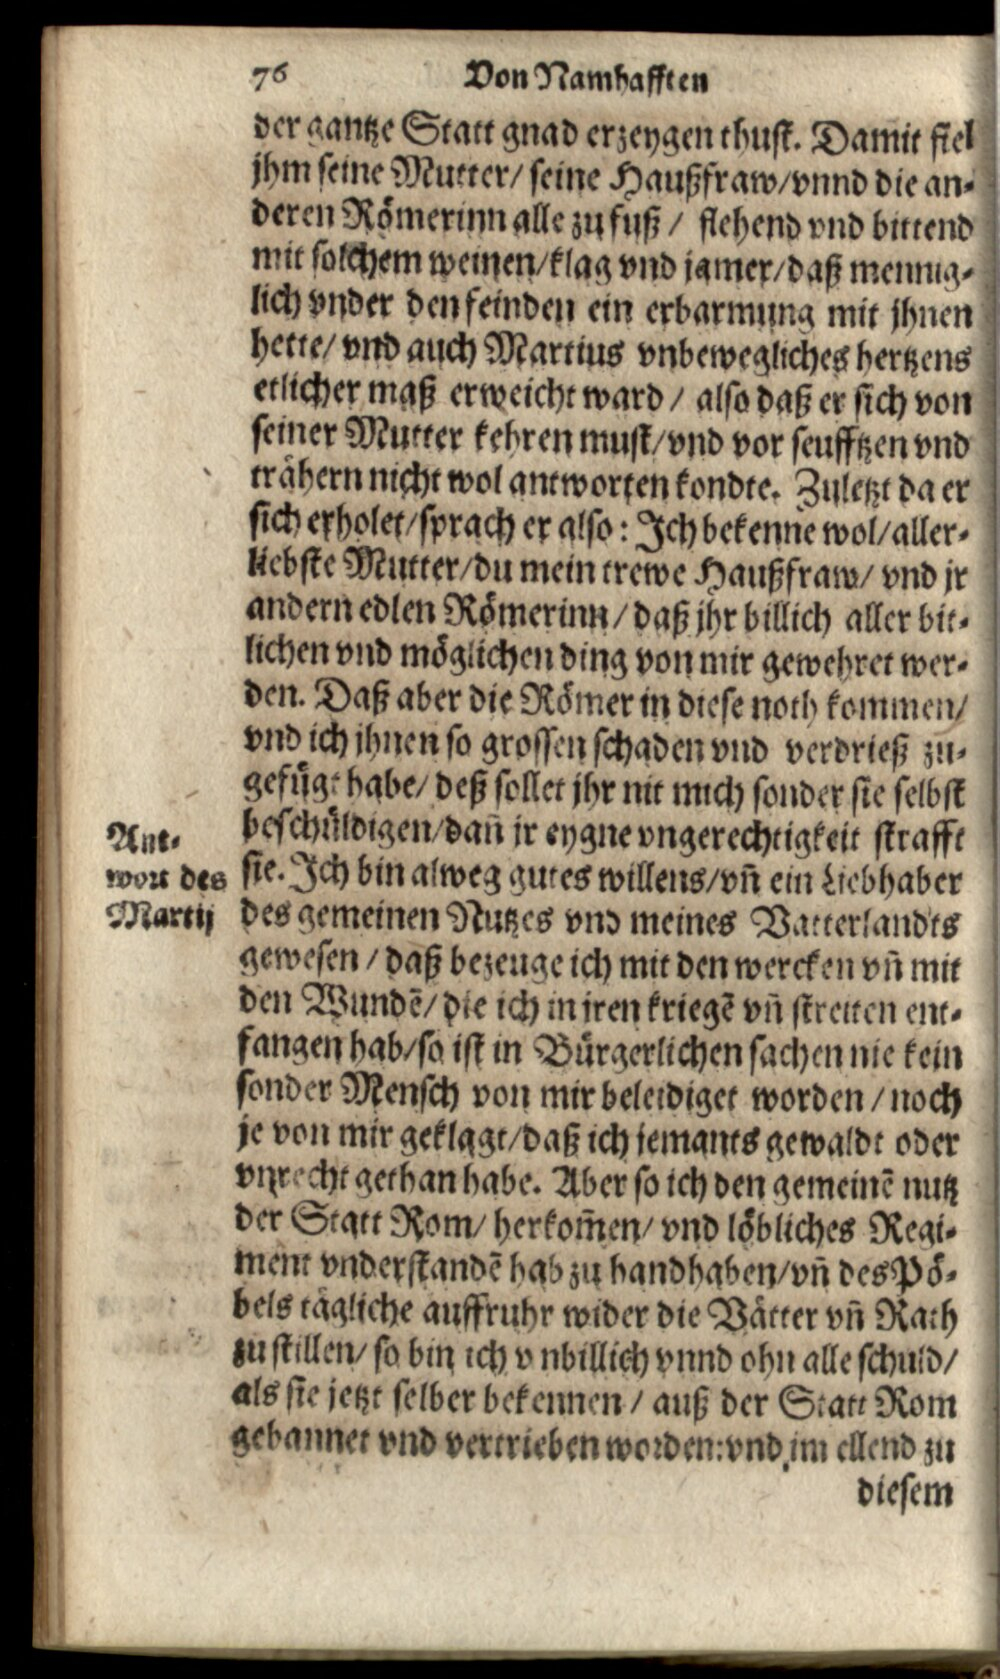 76 Von Namhafften
der gantze Statt gnad erzeygen thust. Damit fiel
jhm seine Mutter/ seine Haußfraw/vnnd die an-
deren Römerinn alle zu fuß / flehend vnd bittend
mit solchem weinen/klag vnd jamer/daß mennig-
lich vnder den feinden ein erbarmung mit jhnen
hette/ vnd auch Martius vnbewegliches hertzens
etlicher maß erweicht ward / also daß er sich von
seiner Mutter kehren must/vnd vor seufftzen vnd
trähern nicht wol antworten kondte. Zuletzt da er
sich erholet/sprach er also: Ich bekenne wol/aller-
liebste Mutter/du mein trewe Haußfraw/ vnd jr
andern edlen Römerinn/daß jhr billich aller bit-
lichen vnd möglichen ding von mir gewehret wer-
den. Daß aber die Römer in diese noth kommen/
vnd ich jhnen so grossen schaden vnd verdrieß zu-
gefügt habe/ deß sollet jhr nit mich sonder sie selbst
beschüldigen/dañ jr eygne vngerechtigkeit strafft
sie. Ich bin alweg gutes willens/vñ ein Liebhaber
des gemeinen Nutzes vnd meines Vatterlandts
gewesen / daß bezeuge ich mit den wercken vñ mit
den Wundẽ/ die ich in jren kriegẽ vñ streiten ent-
fangen hab/so ist in Bürgerlichen sachen nie kein
sonder Mensch von mir beleidiget worden / noch
je von mir geklagt/daß ich jemants gewaldt oder
vnrecht gethan habe. Aber so ich den gemeinẽ nutz
der Statt Rom/ herkom̃en/ vnd löbliches Regi-
ment vnderstandẽ hab zu handhaben/vñ des Pö-
bels tägliche auffruhr wider die Vätter vñ Rath
zu stillen/ so bin ich vnbillich vnnd ohn alle schuld/
als sie jetzt selber bekennen / auß der Statt Rom
gebannet vnd vertrieben worden: vnd im ellend zu
diesem
Ant-
wort des
Martij